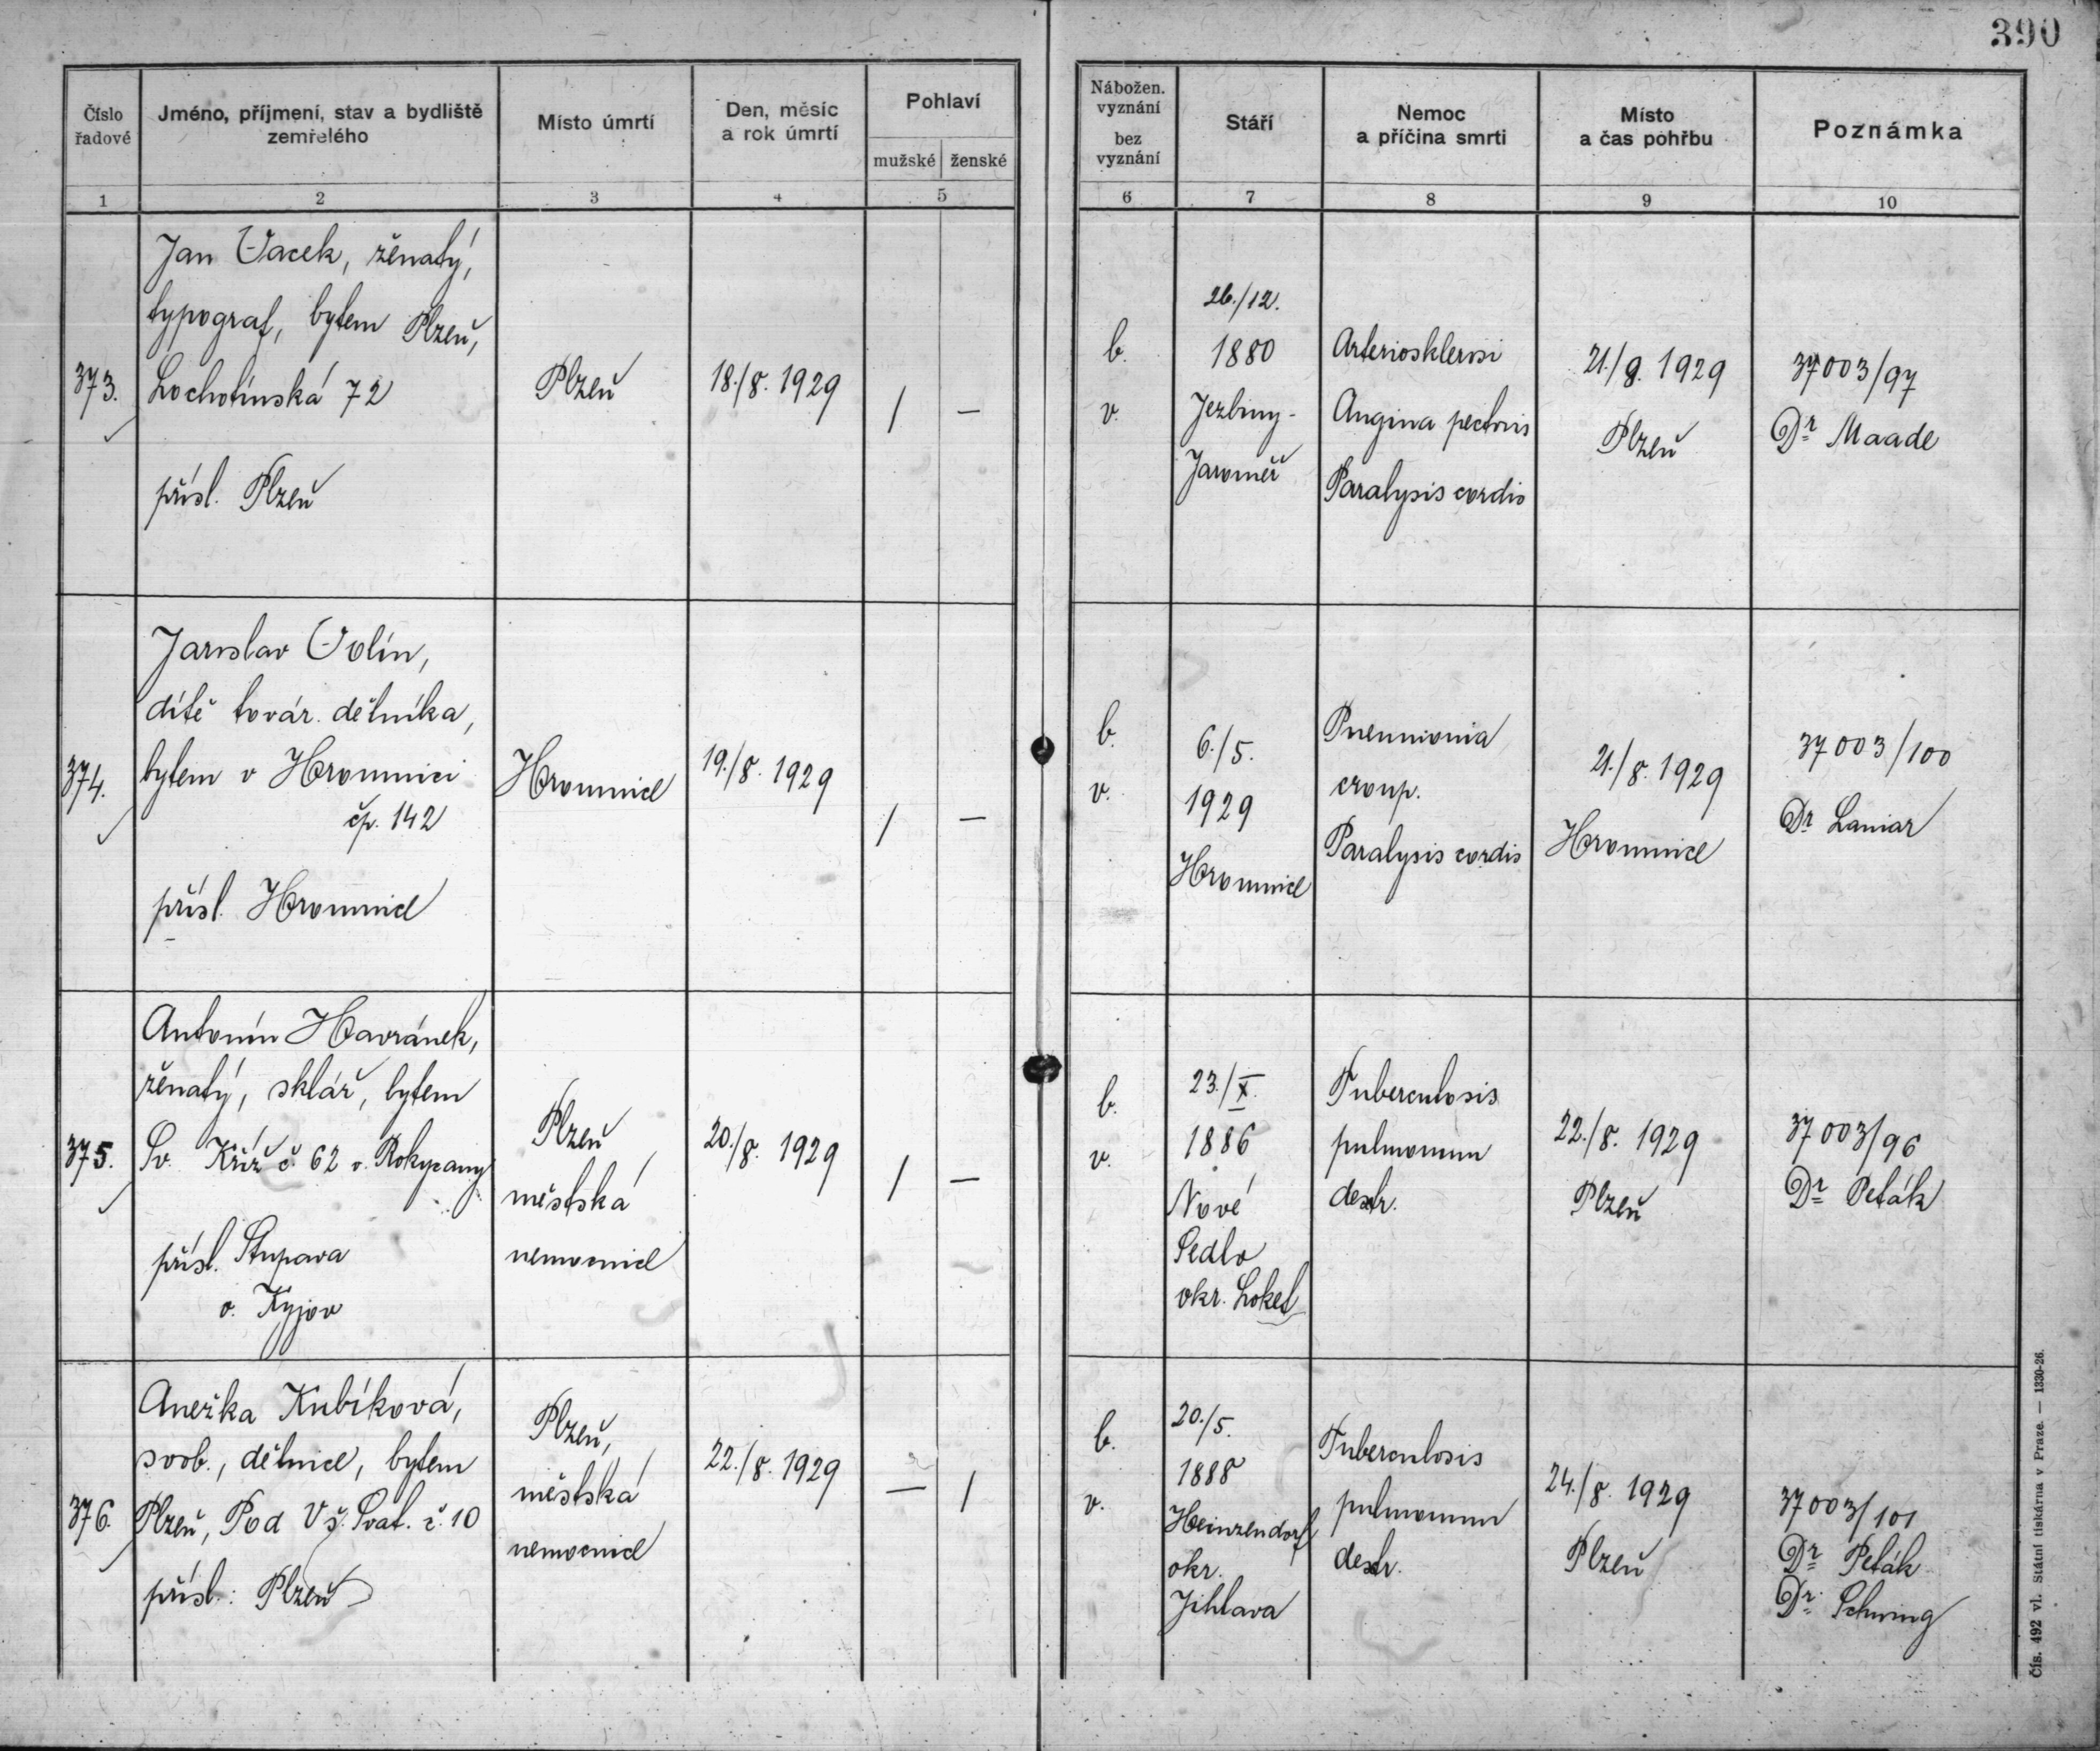 390
Číslo
řadové
Jméno, příjmení, stav a bydliště
zemřelého
Místo úmrtí
Den, měsíc
a rok úmrtí
Pohlaví
mužské
ženské
Nábožen.
vyznání
bez
vyznání
Stáří
Nemoc
a příčina smrti
Místo
a čas pohřbu
Poznámka
1
2
3
4
5
6
7
8
9
10
373.
Jan Vacek, ženatý,
typograf, bytem Plzeň,
Lochotínská 72
přísl. Plzeň
Plzeň
18./8. 1929
/
—
b.
v.
26./12.
1880
Jezbiny-
Jaroměř
Arteriosklerosi
Angina pectoris
Paralysis cordis
21./8. 1929
Plzeň
37003/97
Dr Maade
374.
Jaroslav Volín,
dítě továr. dělníka,
bytem v Hromnici
čp. 142
přísl. Hromnice
Hromnice
19./8. 1929
/
—
b.
v.
6./5.
1929
Hromnice
Pneumonia
croup.
Paralysis cordis
21./8. 1929
Hromnice
37003/100
Dr Laniar
375.
Antonín Havránek,
ženatý, sklář, bytem
Sv. Kříž č. 62 o. Rokycany
přísl. Stupava
o. Kyjov
Plzeň
městská
nemocnice
20./8. 1929
/
—
b.
v.
23./X.
1886
Nové
Sedlo
okr. Loket
Tuberculosis
pulmonum
dextr.
22./8. 1929
Plzeň
37003/96
Dr Peták
376.
Anežka Kubíková,
svob., dělnice, bytem
Plzeň, Pod Vš. Svat. č. 10
přísl.: Plzeň
Plzeň,
městská
nemocnice
22./8. 1929
—
/
b.
v.
20./5.
1888
Heinzendorf
okr.
Jihlava
Tuberculosis
pulmonum
dextr.
24./8. 1929
Plzeň
37003/101
Dr Peták
Dr. Schwing
Čís. 492 vl. Státní tiskárna v Praze. — 1330-26.